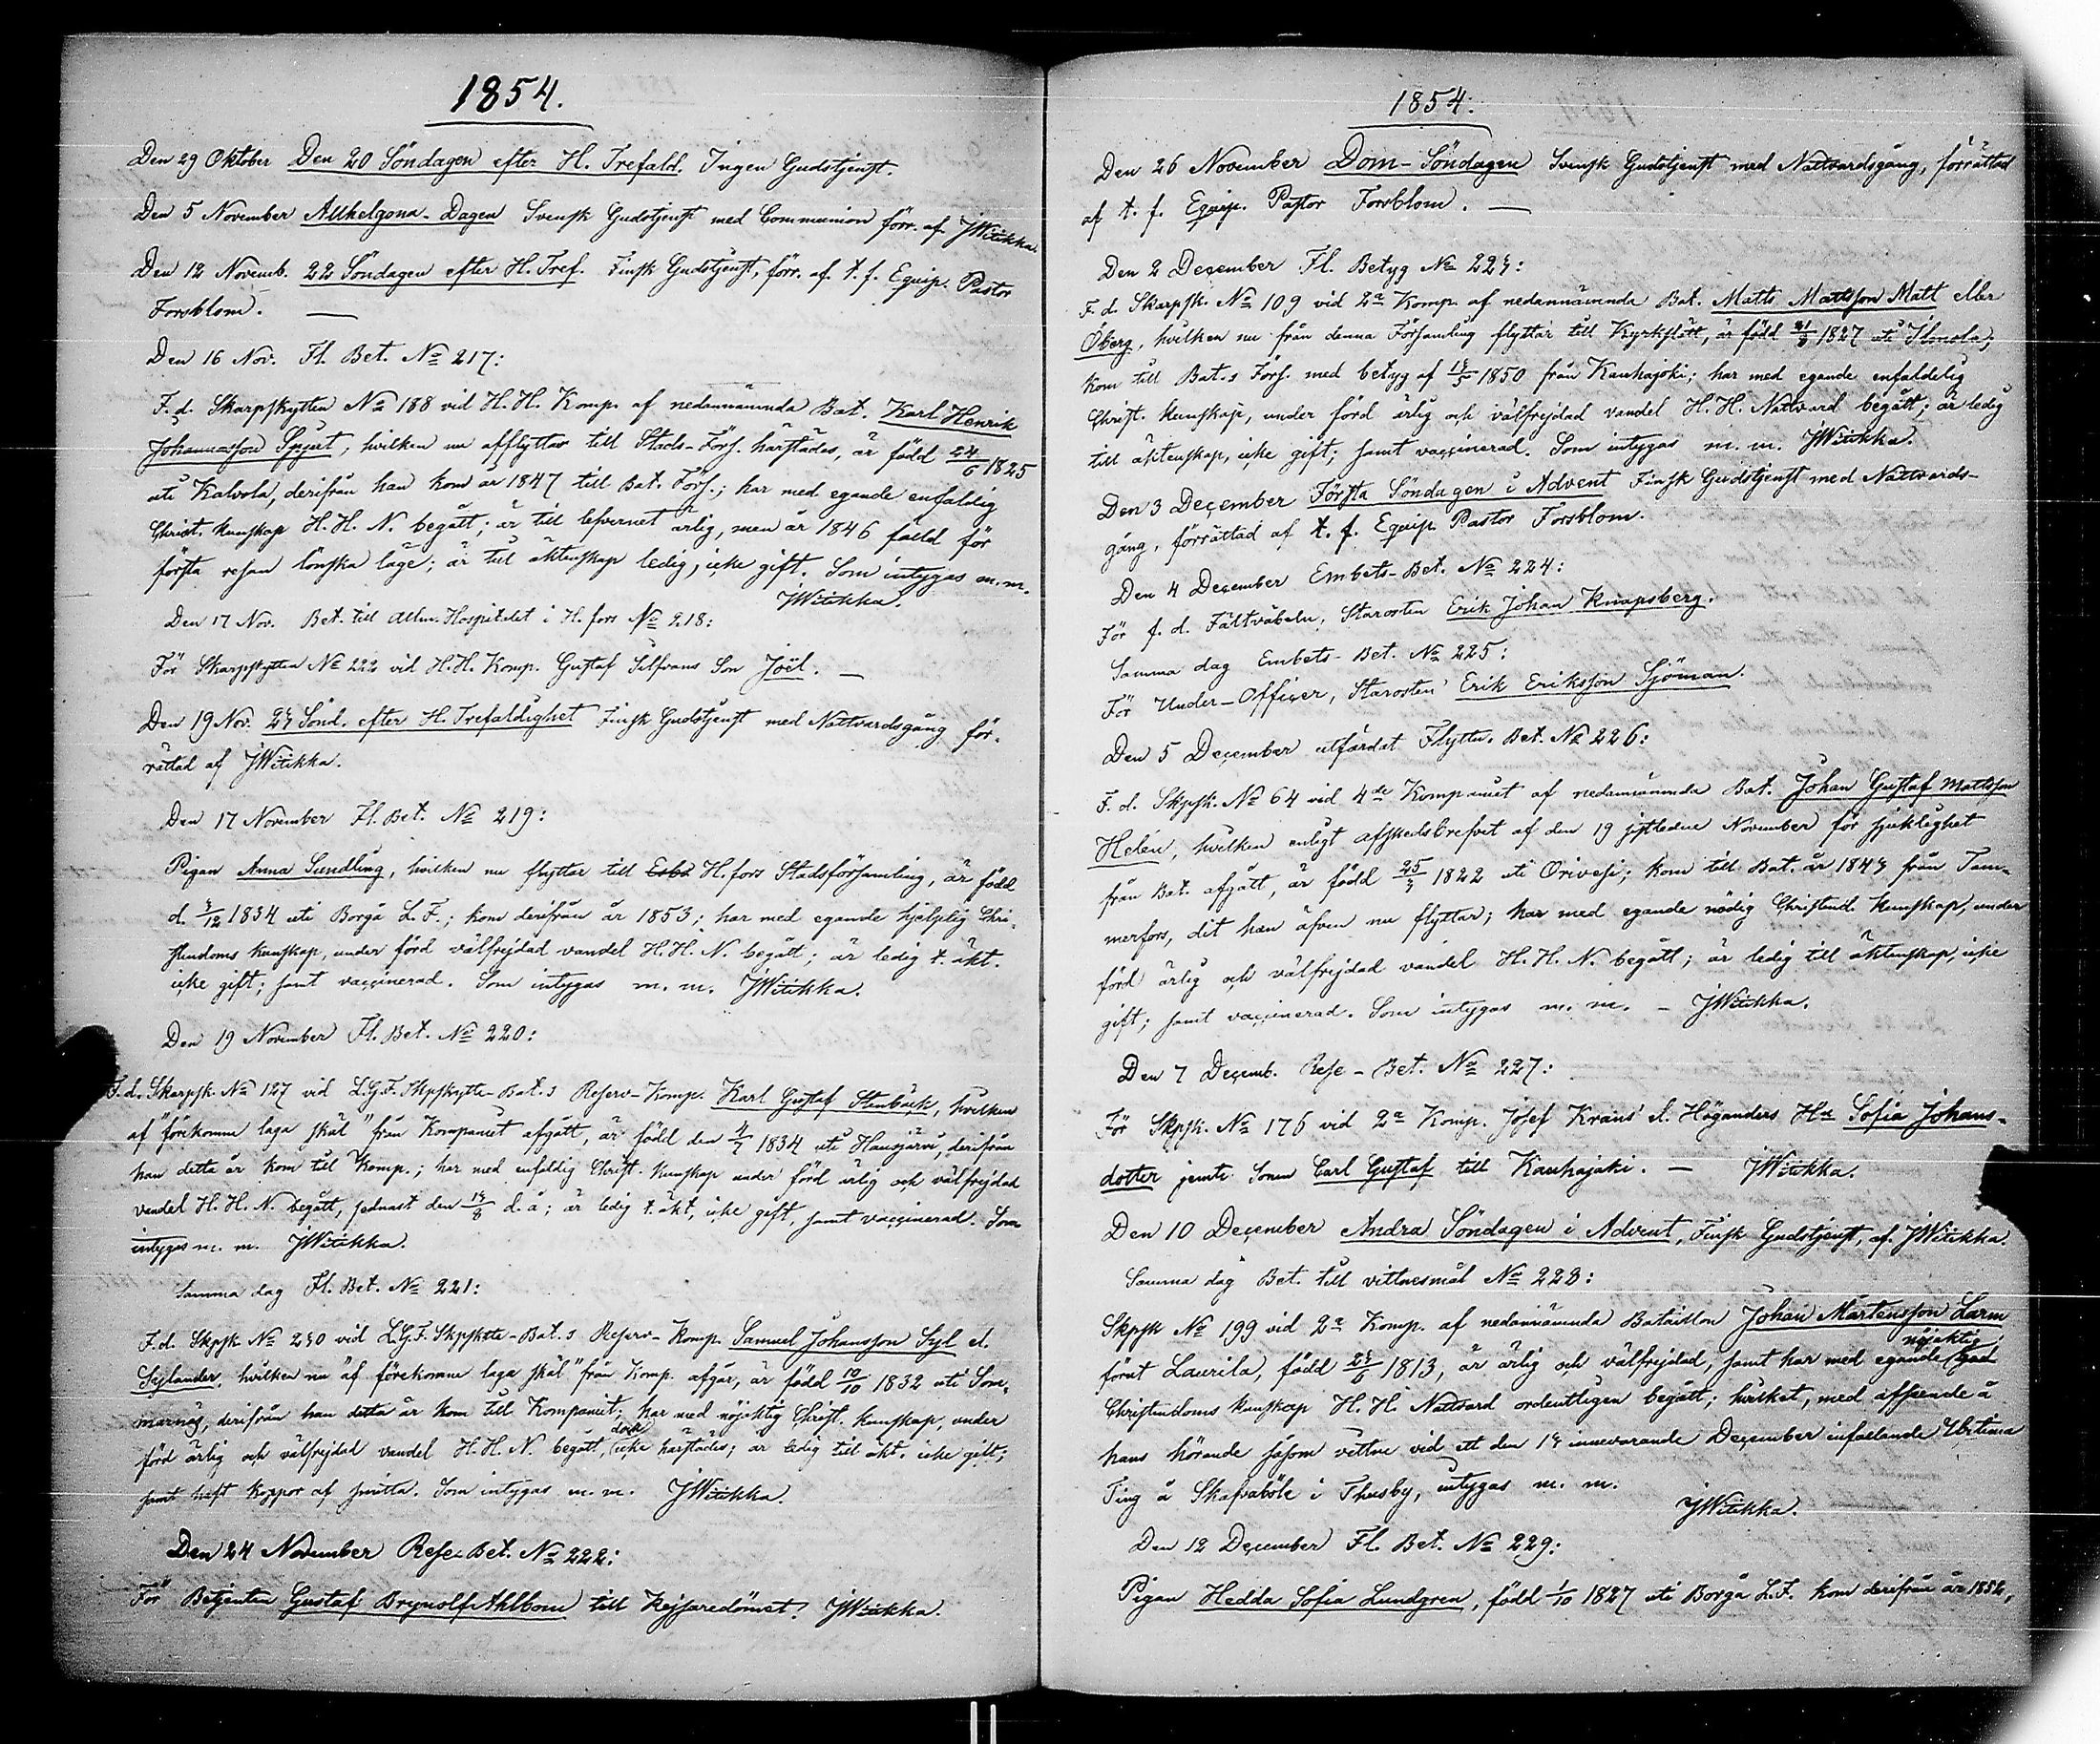 1854.
Den 29 Oktober Den 20 Söndagen efter H. Trefald. Ingen Gudstjenst.
Den 5 November Allhelgona-Dagen Svensk Gudstjenst med Communion förr. af JWitikka.
Den 12 Novemb. 22 Söndagen efter H. Tref. Finsk Gudstjenst, förr. af t. f. Equip. Pastor
Forsblom. —
Den 16 Nov. Fl. Bet. No 217:
F. d. Skarpskytten No 188 vid H. H. Komp. af nedannämnda Bat. Karl Henrik
Johannesson Spjut, hvilken nu afflyttar till Stads-Förs. härstädes, är född 24/6 1825
uti Kalvola, derifrån han kom år 1847 till Bat. Förs.; har med egande enfaldig
Christ. kunskap H. H. N. begått; är till lefvernet ärlig, men år 1846 fälld för
första resan lönska läge; är till äktenskap ledig, icke gift. Som intygas m. m.
JWitikka.
Den 17 Nov. Bet. till Allm. Hospitalet i H.fors No 218:
För Skarpskytten No 222 vid H. H. Komp. Gustaf Silfvans Son Joël. —
Den 19 Nov. 23 Sönd. efter H. Trefaldighet Finsk Gudstjenst med Nattvardsgång för-
rättad af JWitikka.
Den 17 November Fl. Bet. No 219:
Pigan Anna Sundling, hvilken nu flyttar till Esbo H.fors Stadsförsamling, är född
d. 3/12 1834 uti Borgå L. F.; kom derifrån år 1853; har med egande hjelplig Chri-
stendoms kunskap, under förd välfrejdad vandel H. H. N. begått; är ledig t. äkt.
icke gift; samt vaccinerad. Som intygas m. m. JWitikka.
Den 19 November Fl. Bet. No 220:
F. d. Skarpsk. No 127 vid L.G.F. Skpskytte-Bat.s Reserv-Komp. Karl Gustaf Stenbäck, hvilken
af "förekomne laga skäl" från Kompaniet afgått, är född den 4/7 1834 uti Hausjärvi, derifrån
han detta år kom till Komp.; har med enfaldig Christ. kunskap under förd ärlig och välfrejdad
vandel H. H. N. begått, sednast den 13/8 d. å.; är ledig t. äkt, icke gift, samt vaccinerad. Som
intygas m. m. JWitikka.
Samma dag Fl. Bet. No 221:
F. d. Skpsk No 230 vid L.G.F. Skpskytte-Bat.s Reserv-Komp. Samuel Johansson Syl el.
Sylander, hvilken nu "af förekomne laga skäl" från Komp. afgår, är född 10/10 1832 uti Som-
marnäs, derifrån han detta år kom till Kompaniet; har med nöjaktig Christ. kunskap, under
förd ärlig och välfrejdad vandel H. H. N. begått, dock icke härstädes; är ledig till äkt. icke gift;
samt haft koppor af smitta. Som intygas m. m. JWitikka.
Den 24 November Rese-Bet. No 222:
För Betjenten Gustaf Brynolf Ahlbom till Kejsaredömet. JWitikka.
1854.
Den 26 November Dom-Söndagen Svensk Gudstjenst med Nattvardsgång, förrättad
af t. f. Equip. Pastor Forsblom. —
Den 2 December Fl. Betyg No 223:
F. d. Skarpsk. No 109 vid 2a Komp. af nedannämnda Bat. Matts Mattsson Matt eller
Öberg, hvilken nu från denna Församling flyttar till Kyrkslätt, är född 21/8 1827 uti Ilmola;
kom till Bat.s Förs. med betyg af 13/5 1850 från Kauhajoki; har med egande enfaldelig
Christ. kunskap, under förd ärlig och välfrejdad vandel H. H. Nattvard begått; är ledig
till äktenskap, icke gift; samt vaccinerad. Som intygas m. m. JWitikka.
Den 3 December Första Söndagen i Advent Finsk Gudstjenst med Nattvards-
gång, förrättad af t. f. Equip. Pastor Forsblom.
Den 4 December Embets-Bet. No 224:
För f. d. Fältväbeln, Starosten Erik Johan Knapsberg.
Samma dag Embets-Bet. No 225:
För Under-Officer, Starosten Erik Eriksson Sjöman.
Den 5 December utfärdat Flyttn. Bet. No 226:
F. d. Skpsk. No 64 vid 4de Kompaniet af nedannämnda Bat. Johan Gustaf Mattsson
Helén, hvilken enligt afskedsbrefvet af den 19 sistledne November för sjuklighet
från Bat. afgått, är född 25/3 1822 uti Orivesi; kom till Bat. år 1843 från Tam-
merfors, dit han äfven nu flyttar; har med egande nödig Christend. kunskap, under
förd ärlig och välfrejdad vandel H. H. N. begått; är ledig till äktenskap, icke
gift; samt vaccinerad. Som intygas m. m. — JWitikka.
Den 7 Decemb. Rese-Bet. No 227:
För Skpsk. No 176 vid 2a Komp. Josef Krans el. Höganders Hu Sofia Johans-
dotter jemte Sonen Carl Gustaf till Kauhajoki. — JWitikka.
Den 10 December Andra Söndagen i Advent, Finsk Gudstjenst, af JWitikka.
Samma dag Bet. till vittnesmål No 228:
Skpsk No 199 vid 2a Komp. af nedannämnda Bataillon Johan Mårtensson Larm
förut Laurila, född 23/6 1813, är ärlig och välfrejdad, samt har med egande nöjaktig god
Christendoms kunskap H. H. Nattvard ordentligen begått; hvilket, med afseende å
hans hörande såsom vittne vid ett den 13 innevarande December infallande Urtima
Ting å Skafvaböle i Thusby, intygas m. m.
JWitikka.
Den 12 December Fl. Bet. No 229:
Pigan Hedda Sofia Lundgren, född 1/10 1827 uti Borgå L.F. kom derifrån år 1852,